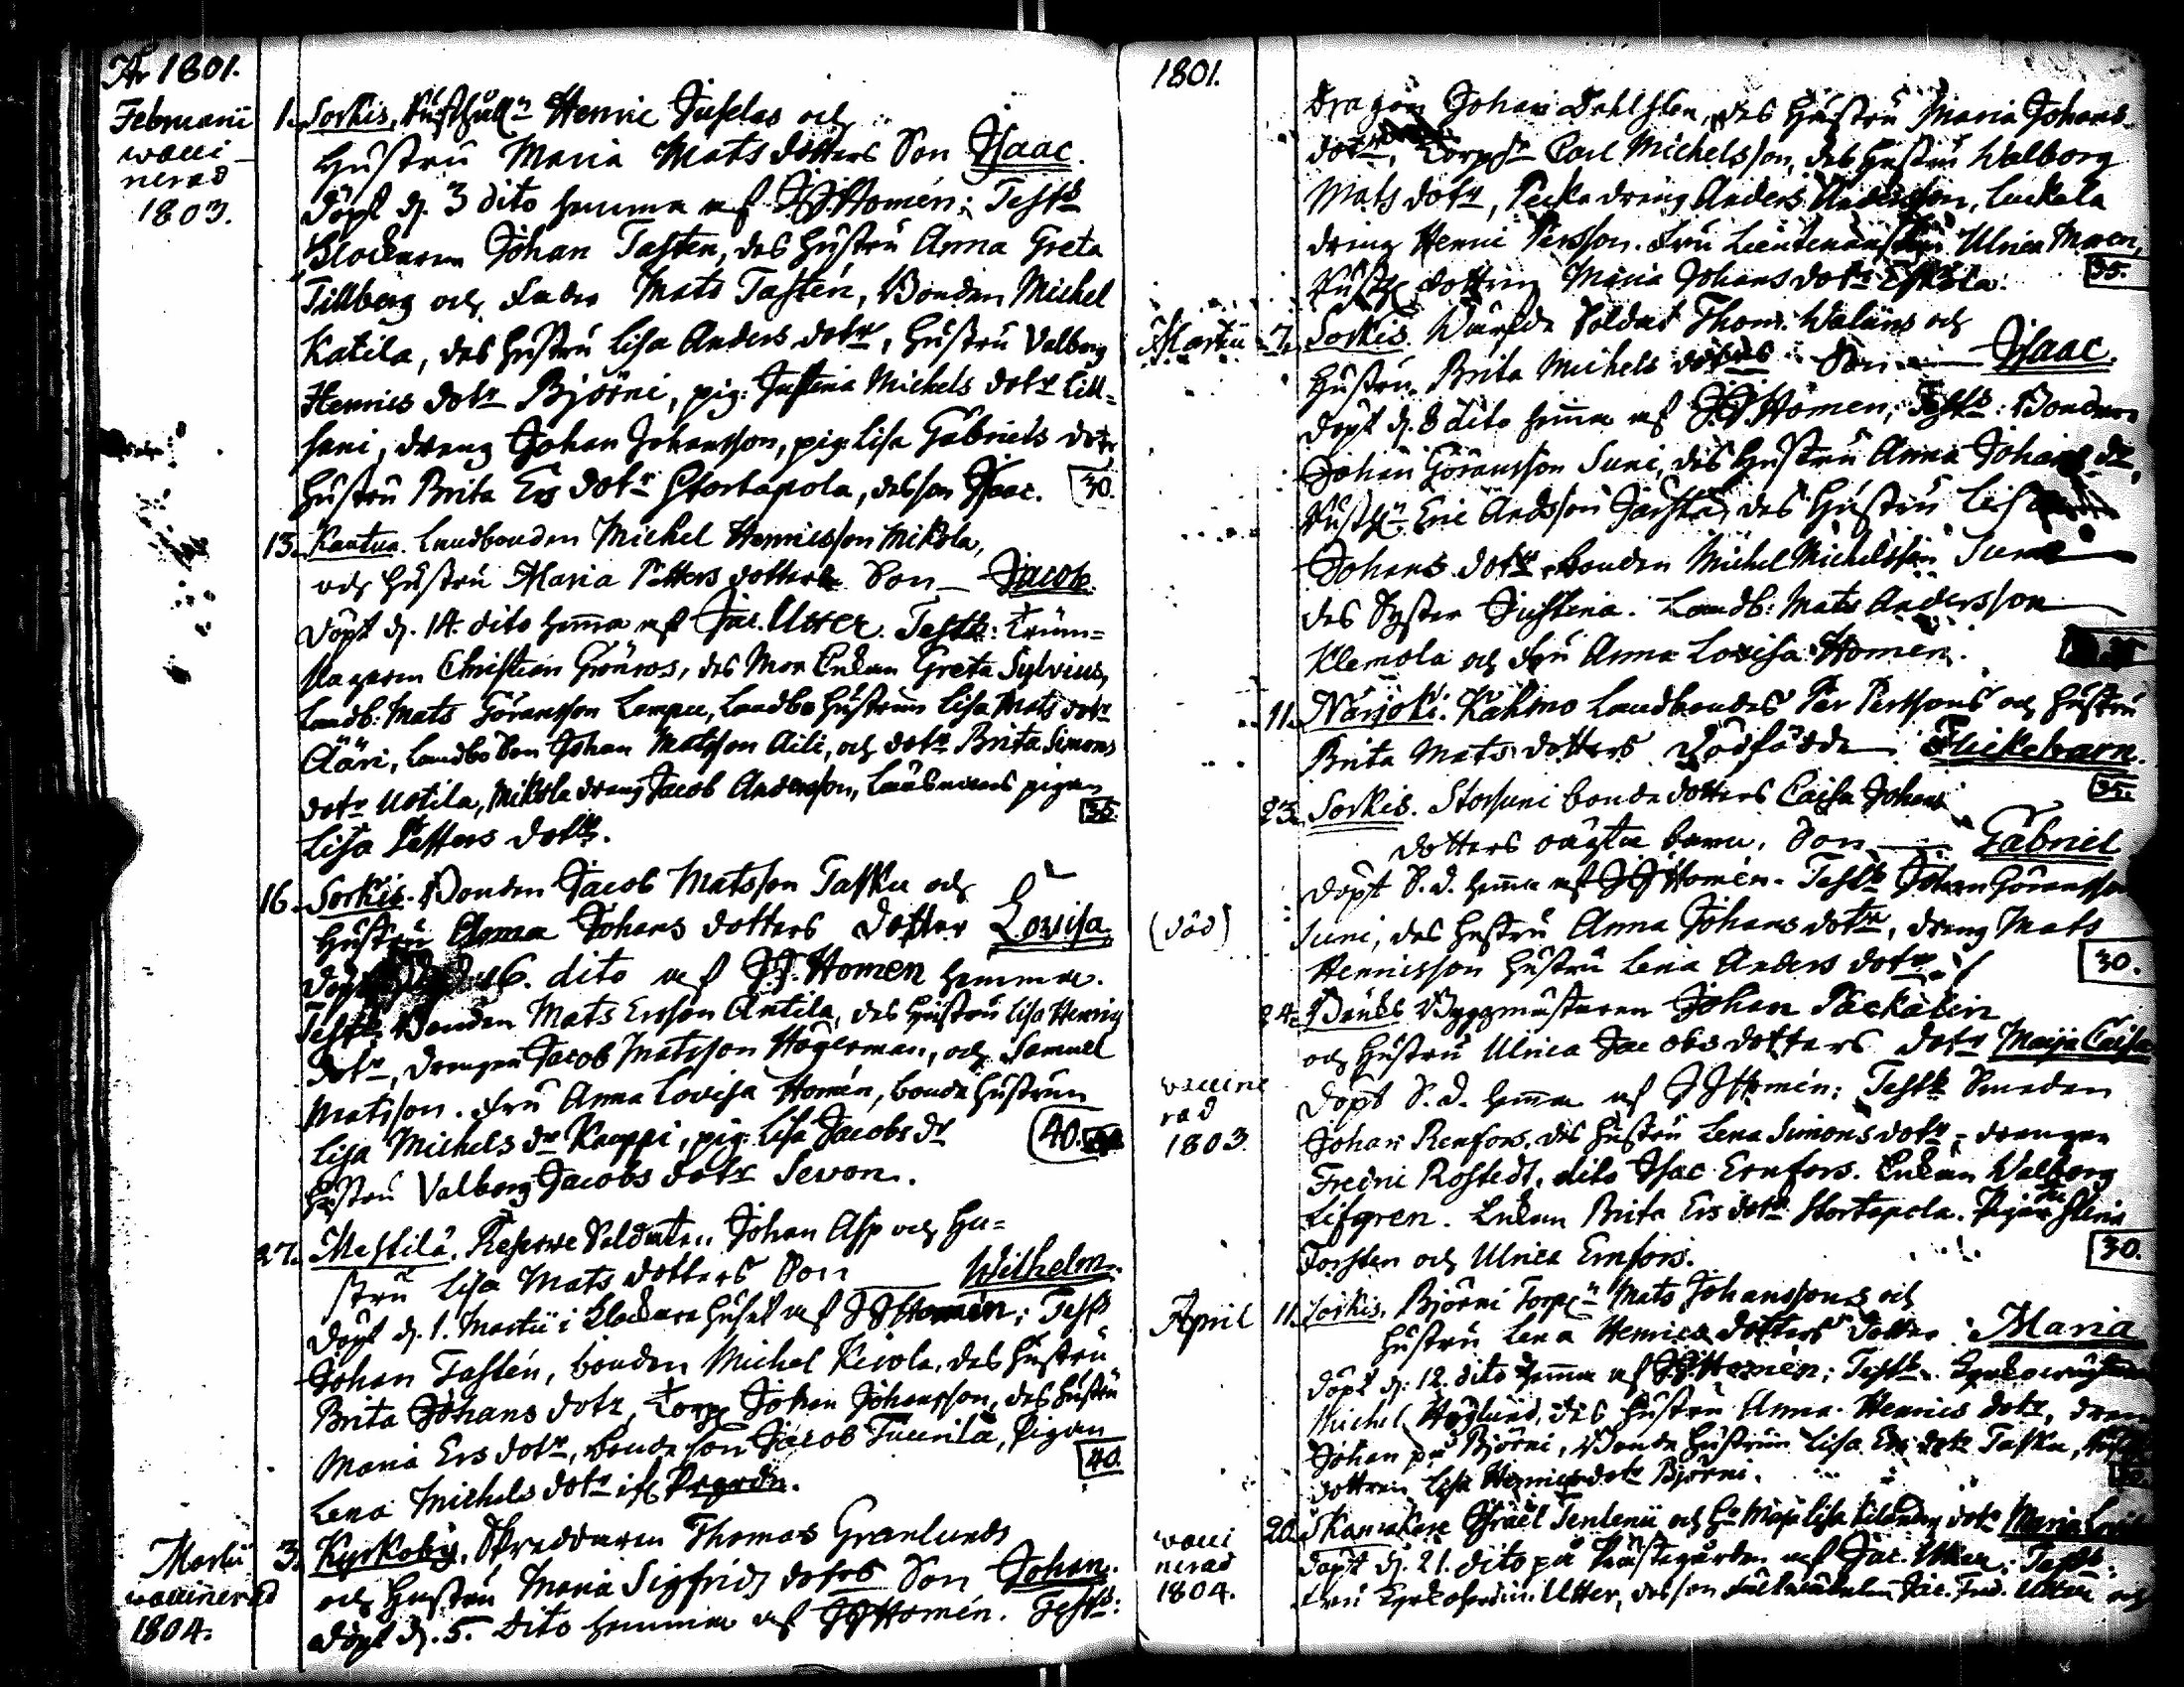 År 1801.
Februarii
vacci-
nerad
1803.
1. Sorkis, Rusthåll:n Henric Juselas och
Hustru Maria Matsdotters Son Isaac.
döpt d. 3 dito hemma af JJHomén; Test:
Klockaren Johan Tastén, des Hustru Anna Greta
Tillberg och Mats Tastén, Bonden Michel
Katila, des hustru Lisa Anders dotr, hustru Valborg
Henrics dotr Björni, pig: Justina Michels dotr Lill-
suni, dreng Johan Johansson, pig: Lisa Gabriels dotr
hustru Brita Ers dotr Stortapola, des son Isaac. 30.
13. Kantua. Landbonden Michel Henricsson Mikola,
och hustru Maria Petters dotters Son Jacob
döpt d. 14. dito hemma af Jac. Utter. Test: Trum-
slagaren Christian Grönroos, des Mor Enkan Greta Sylvius,
Landb: Mats Göransson Lempu, Landbo hustrun Lisa Mats dotr
Ääri, Landbo Son Johan Matsson Aili, och dotr Brita Simons
dotr Uotila, Mikola dreng Jacob Andersson, Länsmans pigan
Lisa Petters dotr. 35.
16. Sorkis. Bonden Jacob Matsson Tasku och
hustru Anna Johans dotters dotter Lovisa
döpt 16. dito af J.J. Homen hemma.
Test: Bonden Mats Ersson Antila, des hustru Lisa Henrics
dotr, drengen Jacob Matsson Hägerman, och Samuel
Matsson. Fru Anna Lovisa Homén, bonde hustrun
Lisa Michels dr Kauppi, pig: Lisa Jacobs dr 40.
hustru Valborg Jacobs dotr Sevon.
27. Mestilä. Reserve Soldaten Johan Asp och hu-
stru Lisa Mats dotters Son Wilhelm.
döpt d. 1. Martii i Klockare huset af JJHomén; Test
Johan Tastén, bonden Michel Kivola, des hustru
Brita Johans dotr, Torp Johan Johansson, des hustru
Maria Ers dotr, bonde son Jacob Tuurila, pigan
Lena Michels dotr 40.
Martii
vaccinerad
1804.
3. Kyrkoby. Skreddaren Thomas Granlunds
och hustru Maria Sigfrids dotrs Son Johan.
döpt d. 5. dito hemma af JJHomén. Test:
1801.
Dragon Johan Dahlsten, des Hustru Maria Johans
dotr, Torp:r Carl Michelsson, des hustru Walborg
Mats dotr, Pecka dreng Anders Andersson, Luckala
dreng Henric Persson. Fru Lieutenantskan Ulrica
Rusth dottren Maria Johans dotr Eskola. 35.
Martii 7. Sorkis. Värfde Soldat Thom: Waléns och
hustru Brita Michels dotrs Son Isaac.
döpt d. 8 dito hemma af J.J.Homen; Test: Bonden
Johan Göransson Suni, des hustru Anna Johans dr,
Rusth:n Eric Andsson, des Hustru Lisa
Johans dotr, bonden Michel Michelsson Suni
des Syster Justina. Landb: Mats Andersson
Klemola och Fru Anna Lovisa Homén.
11. Närjoki. Kahmo Landbondes Per Perssons och hustru
Brita Mats dotters dödfödde Flickebarn.
35.
23. Sorkis. Storsuni bonde dotters Caisa Johans
dotters oägta barn. Son Gabriel
döpt S. d. hemma af JJHomén. Test: Johan Göransson
(död) Suni, des hustru Anna Johans dotr, dreng Mats
Henricsson hustru Lena Anders dotr. 30.
24. Bruks Byggmästaren Johan Päckälein
och hustru Ulrica Jacobs dotters dotr Maija Caisa
vaccine
rad
1803.
döpt S. d. hemma af JJHomén; Test Smeden
Johan Renfors, des hustru Lena Simons dotr, drengen
Fredric Rostedt, dito Isac Ernfors. Enkan Walborg
Löfgren. Enkan Brita Ers dotr Stortapola. Pigan
Torsten och Ulrica Ernfors. 30.
April 11. Sorkis. Björni Torp:n Mats Johanssons och
hustru Lena Henrics dotters dotter Maria
döpt d: 12. dito hemma af JJHomén; Test:
Michel Höglund, des hustru Anna Henrics dotr, dreng
Johan på Björni, Bonde hustrun Lisa Ers dotr Tasku,
dottren Lisa Henrics dotr Björni.
vacci
nerad
1804.
20. Israel Tenlenii och H:u Maja Lisa dotr Maria
döpt d. 21. dito på Prästegården af Jac. Utter; Test:
Fru Utter, des son Jac. Fred. Utter och